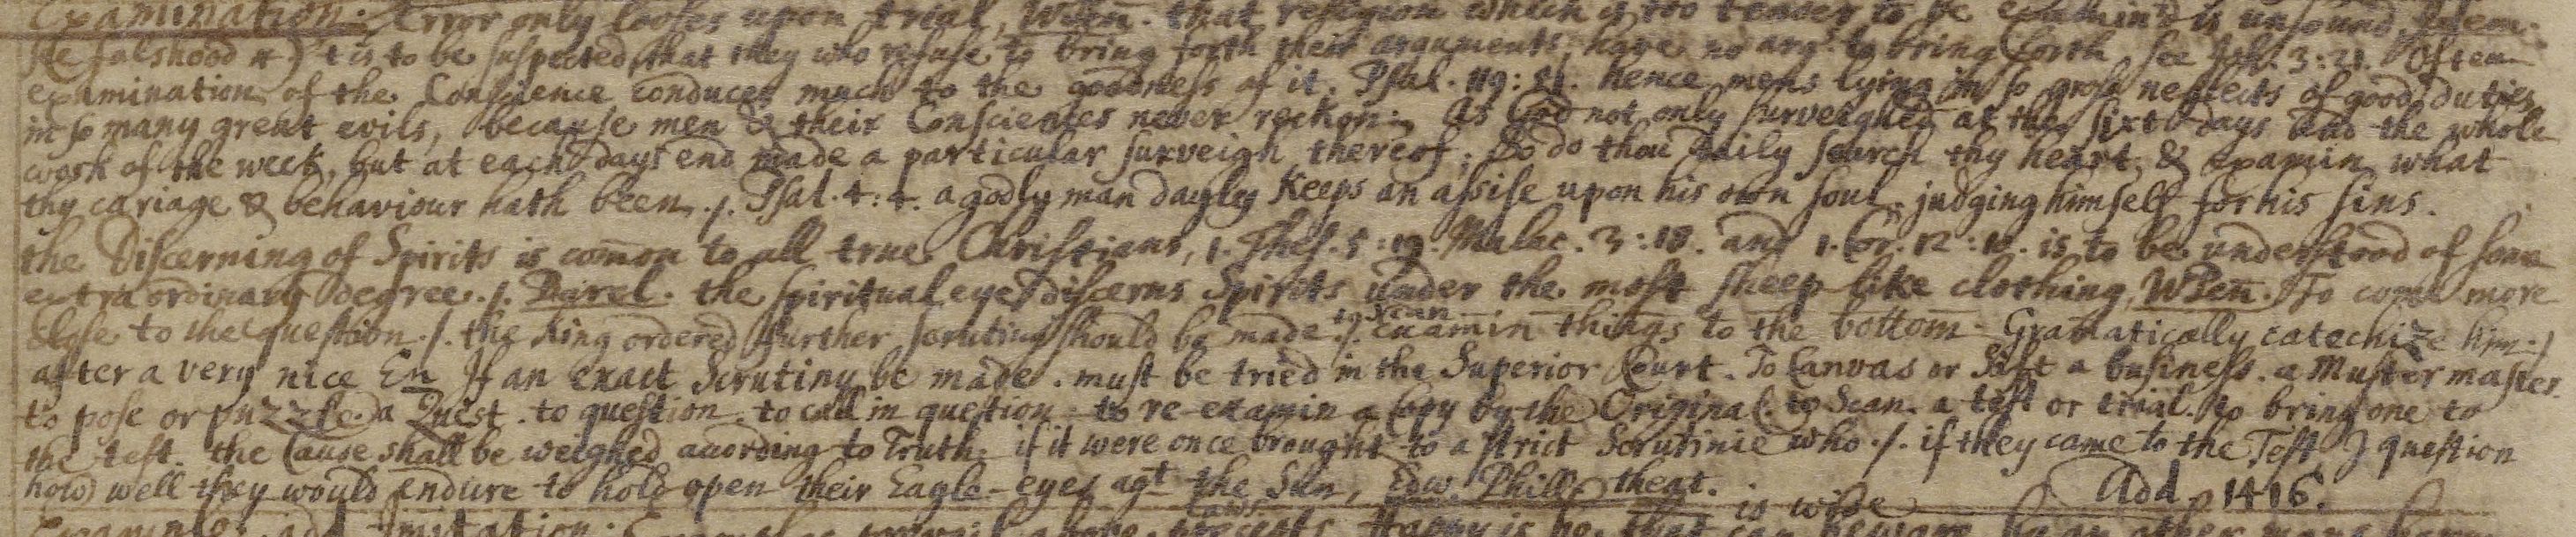 Examination. Error only looses upon trial, Wsen. that religion which is too tender to be examin'd is unsound, Idem.
falshood 't is to be suspected, that they who refuse to bring forth their arguments, have no arg.ts to bring forth see Joh. 3:21. Often
examination of the Conscience conduces much to the goodness of it. Psal. 119: hence mens lying in so gross neglects of good duties,
in so many great evils, because men & their Consciences never reckon: As God not only surveighed at the sixt days end the whole
work of the week, but at each days end made a particular surveigh thereof; So do thou Daily search thy heart, & examin what
thy cariage & behaviour hath been ./. Psal. 4:4. a godly man dayley keeps an assise upon his own soul, judging himself for his sins.
the Discerning of Spirits is com̄on to all true Christians, 1. Thes. 5:19. Malac. 3:18. and 1. Cor. 12:10. is to be understood of some
extra ordinary degree ./. Darel. the spiritual eye discerns Spirits under the most sheep like clothing, Wsen. To come more
close to the question ./. the King ordered further scrutiny should be made ./. to scan examin things to the bottom. Gramatically catechize him ./
after a very nice En If an exact Scrutiny be made. must be tried in the Superior Court. To Canvas or Sift a business. a Muster master.
to pose or puzzle. a Quest. to question. to call in question. to re-examin a Copy by the Original. to Scan. a test or trial. to bring one to
the test. the Cause shall be weighed according to Truth. if it were once brought to a strict Scrutinie who ./. if they came to the Test I question
how well they would endure to hold open their Eagle-eyes ag.t the Sun, Edw. Phill. theat.
Add. p 1416.
Imitation. laws. precepts. Happy is he that is wise can beware by an other mans